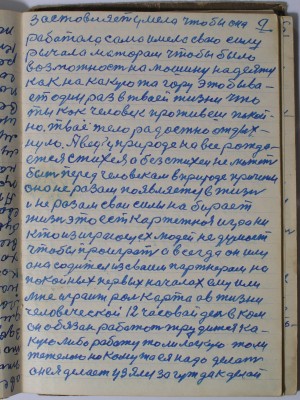 заставляет умело чтобы она
работала сама имела свою силу
рычала мотором чтобы было
возможность на машину надейту
как на какую то гору это быва-
ет один раз в твоей жизни что
ты как человек проживеш покой-
но, твоё тело радостно отдых-
нуло. Я вед у природе на все рожда-
ется стихея а без стихеи не может
быть перед человеком в природе причины
она не разом появляется в жизн
и не разом свои силы набирает
жизн это ест картежная игра ни
кто из играющех людей не думает
чтобы проиграт а всегда он ищ
она садится из своим партнерам но
покойных первых началах ему или
мне играит рол карта а в жизни
человеческой 12 часовой ден в ком
он обязан работат трудится ка-
кую либо работу то или легкую то ли
тежолою но кому то ея надо делат
она делает взяли за гуж дак делай